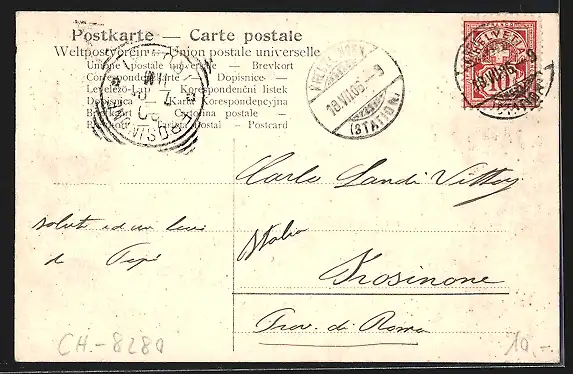 Postkarte — Carte postale
Weltpostverein — Union postale universelle
Unione postale universale — Brevkort
Correspondenzkarte — Dopisnice —
Levelező-Lap — Korespondenční listek
Dopisnica — Karta Korespondencyjna
Brevkaart — Cartolina postale —
Postal — Postcard
HELVETIA
10
18.VII.05. 9
(STATION)
18.VII.05. 9
(STATION)
FROSINONE
Carlo Landi Vittorj
Italia
Frosinone
Prov. di Roma
saluti ed un bacio
di Pepi
CH.-8280
10,-